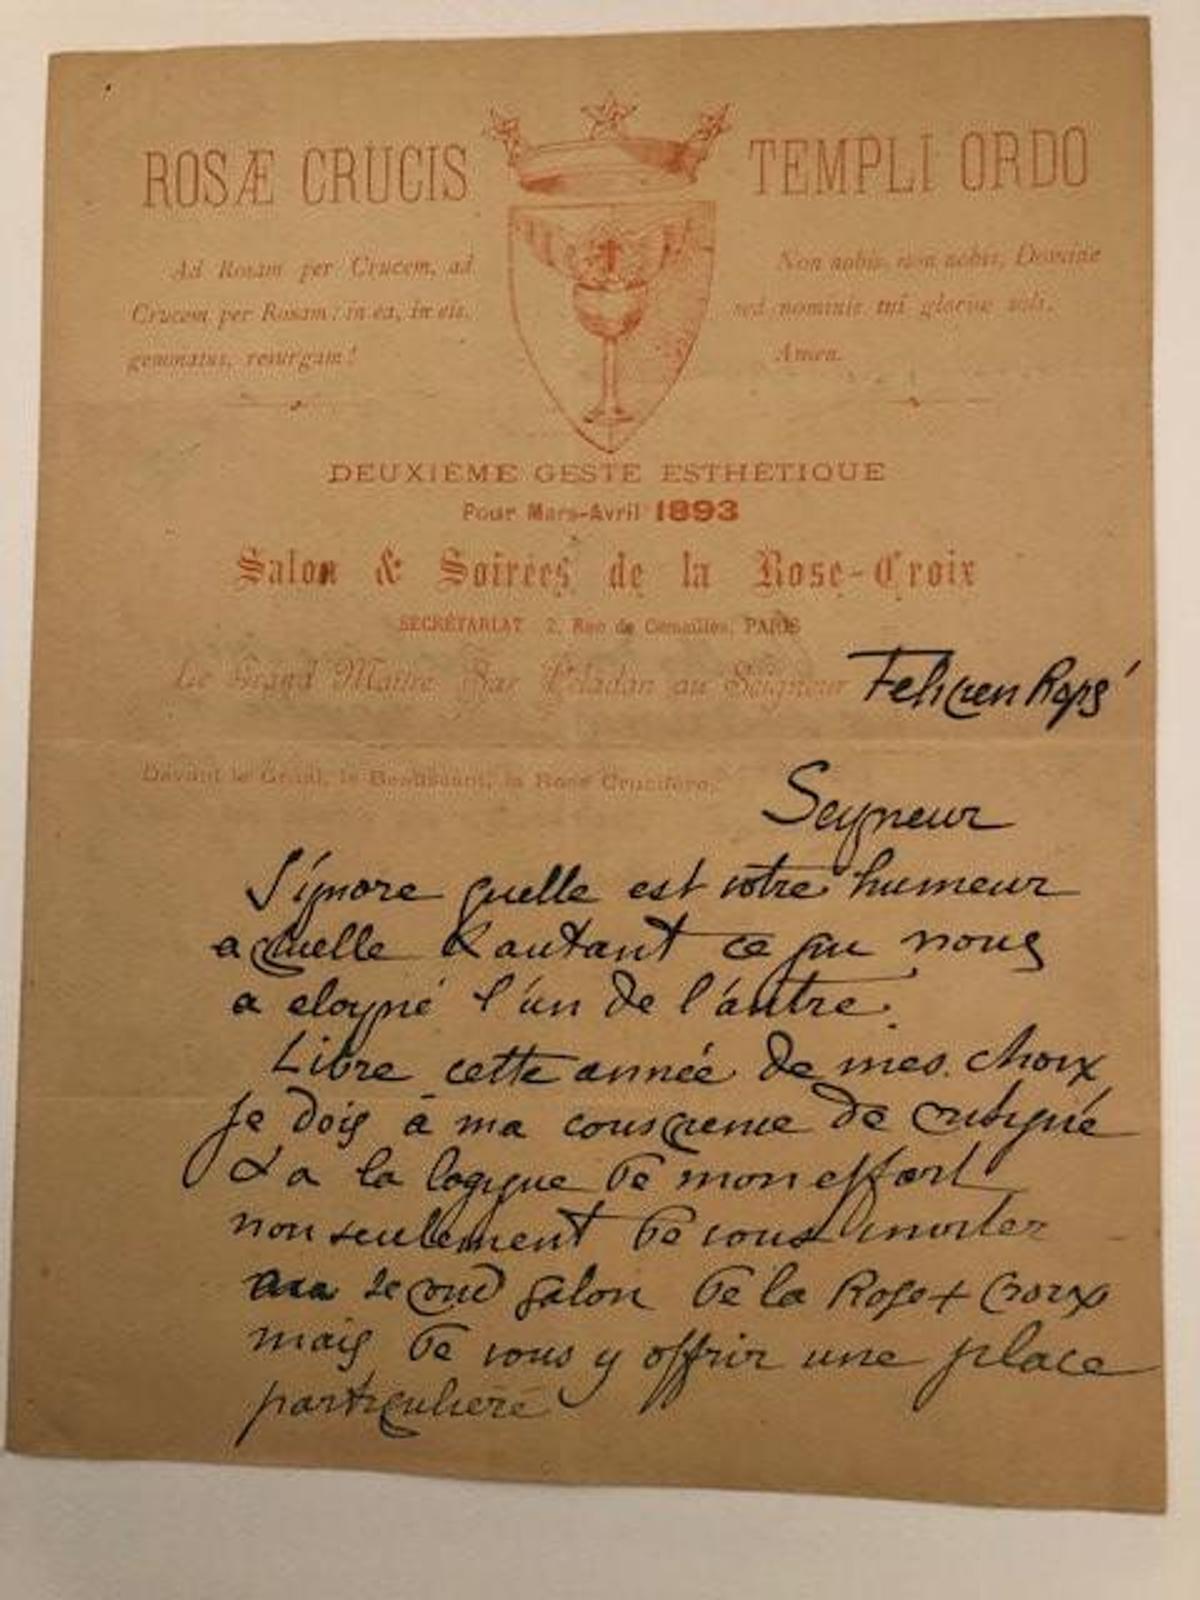 ROSÆ CRUCIS
TEMPLI ORDO
Ad Rosam per Crucem, ad
Crucem per Rosam; in ea, in eis,
gemmatus, resurgam!
Non nobis, non nobis, Domine
sed nominis tui gloriæ soli.
Amen.
DEUXIÈME GESTE ESTHÉTIQUE
Pour Mars-Avril 1893
Salon & Soirées de la Rose-Croix
SECRÉTARIAT 2, Rue de Commailles, PARIS
Le Grand Maitre Sar Péladan au Seigneur Felicien Rops
Devant le Graal, le Beauséant, la Rose Crucifère.
Seigneur
J'ignore quelle est votre humeur
actuelle & autant ce qui nous
a eloigné l'un de l'autre.
Libre cette année de mes choix
je dois à ma conscience de critique
& a la logique de mon effort
non seulement de vous inviter
au second salon de la Rose+Croix
mais de vous y offrir une place
particulière